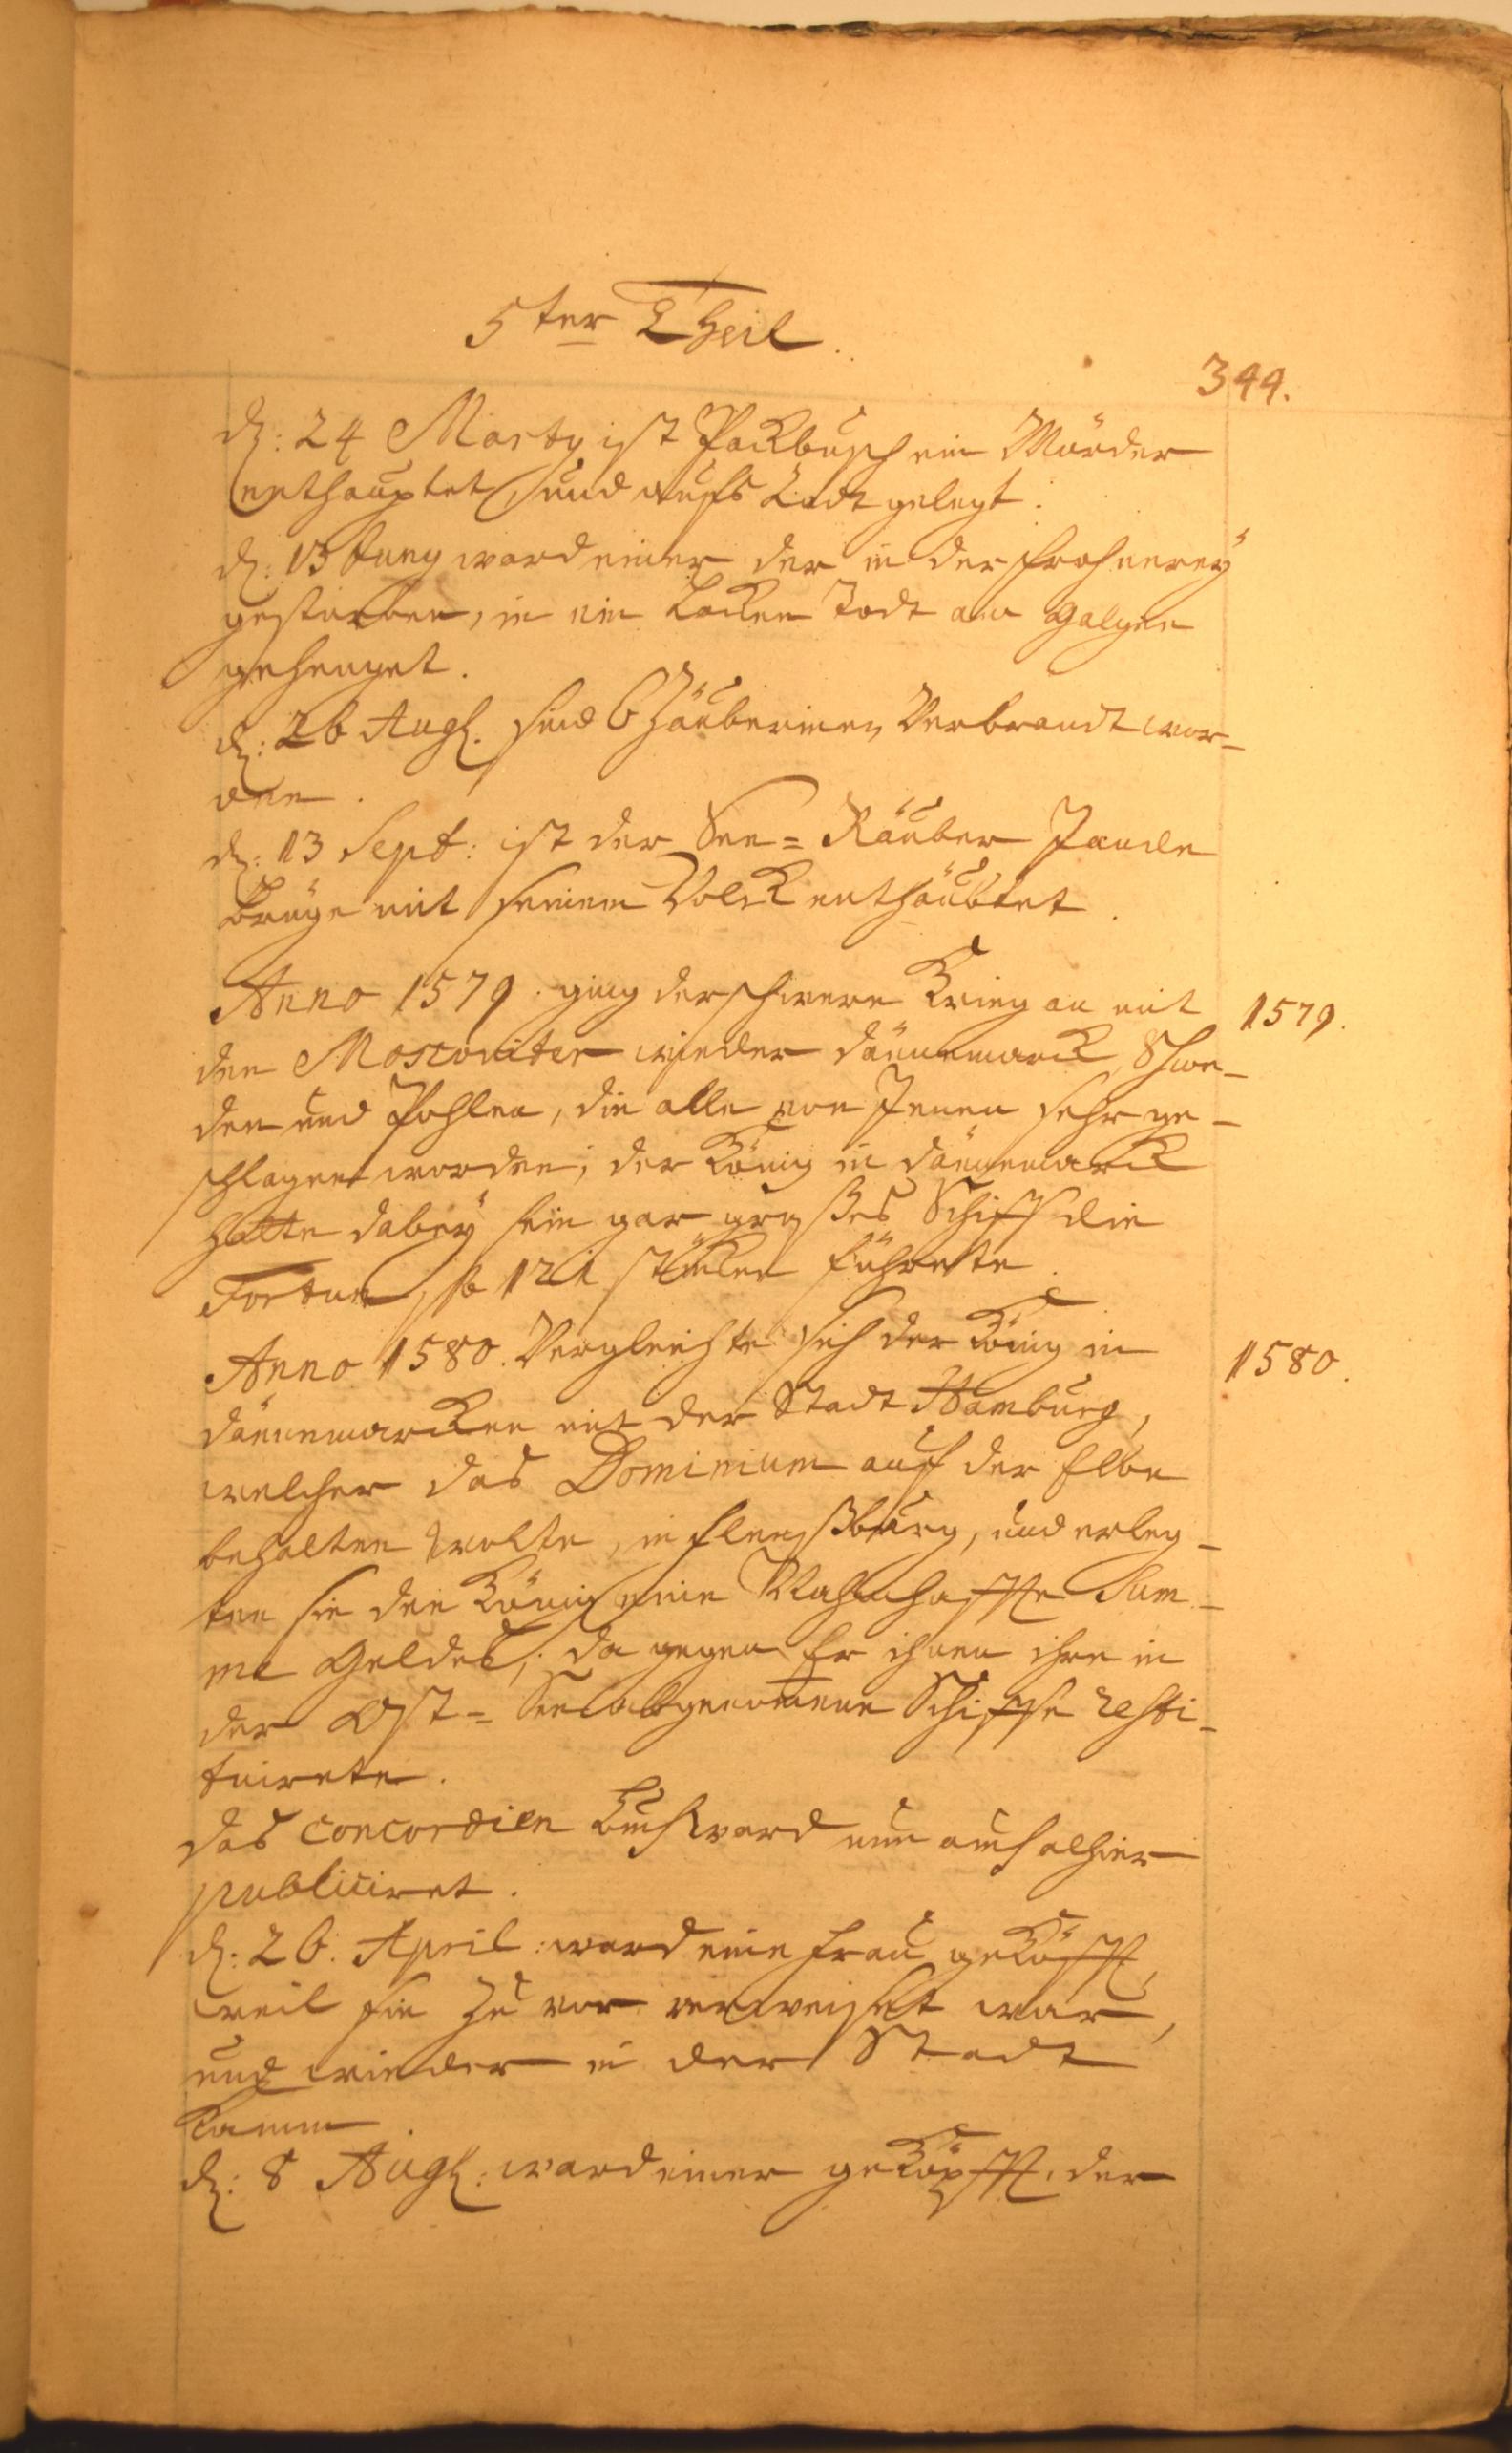 5ter Theil.
344.
d: 24 Marty ist Packbusch ein Mörder
enthauptet, und aufs Radt gelegt.
d: 13 Juny ward einer der in der Frohnerey
gestorben, in ein Laken Todt am Galgen
gehenget.
d: 26 Augs. sind 6 Zäuberinnen Verbrandt wor-
den.
d: 13 Sept: ist der See-Räuber
mit seinem Volck enthäubtet.
Anno 1579. ging der schwere Krieg an mit
1579.
den Moscoviter wieder Dännemarck, Schwe-
den und Pohlen, die alle von Jenen sehr ge-
schlagen worden; der König in Dännemarck
hatte dabey sein gar großes Schiff die
Fortun, so 121 stücken führete.
Anno 1580. Vergleichte sich der König in
1580.
Dännemarcken mit der Stadt Hamburg,
welcher das Dominium auf der Elbe
behalten wolte, in Flensßburg, und erleg-
ten sie den König eine Nahmhaffte Sum-
me Geldes, da gegen Er ihnen ihre in
der Ost-See abgenommene Schiffe resti-
tuirete.
Das Concordien Buch ward nun auch alhier
publiciret.
d: 26. April: ward eine Frau geköfft,
weil sie zu vor verweiset war,
und wieder in der Stadt
kamm.
d: 8 Augs: ward einer geköpfft, der